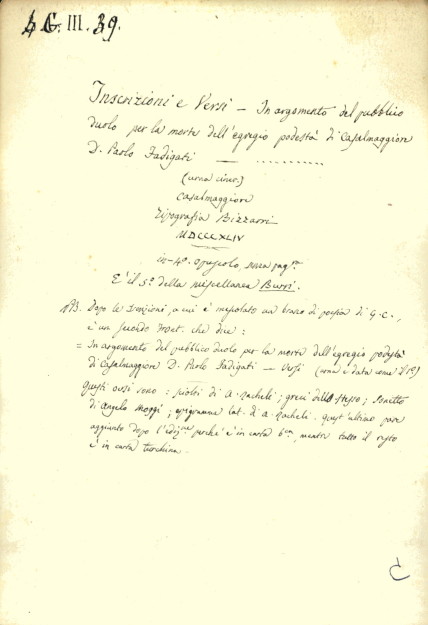 G. III. 39.
Inscrizioni e Versi — In argomento del pubblico
duolo per la morte dell'egregio podestà di Casalmaggiore
D. Paolo Fadigati — ...........
(urna ciner.)
Casalmaggiore
Tipografia Bizzarri
MDCCCXLIV
in-4º. opuscolo, senza pag.
E' il 5º della miscellanea Burri.
NB. Dopo le Iscrizioni, a cui è un brano di poesia di G. C.,
è un secondo front. che dice:
= In argomento del pubblico duolo per la morte dell'egregio podestà
di Casalmaggiore D. Paolo Fadigati — Versi (urna e data come il 1º)
Questi versi sono: sciolti di A. Racheli; greci dello stesso; sonetto
di Angelo Moggi; epigramma lat. di A. Racheli. Quest'ultimo pare
aggiunto dopo l'ediz.ne perchè è in carta, mentre tutto il resto
è in carta turchina.